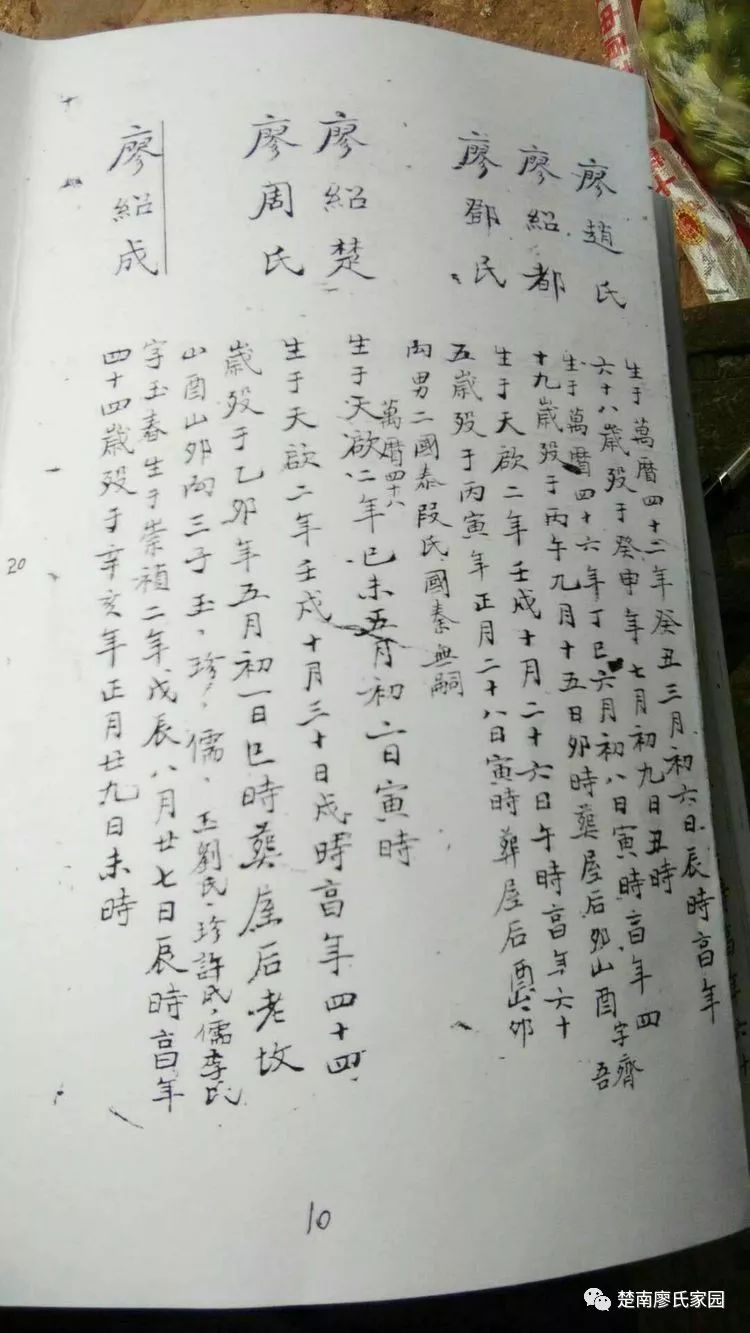 廖趙氏
生于萬曆四十二年癸丑三月初六日辰時享年
六十八歲殁于癸申年七月初九日丑時
廖紹都
生于萬曆四十六年丁巳六月初八日寅時享年四
十九歲殁于丙午九月十五日卯時葬屋后卯山酉
字齊
吾
廖鄧氏
生于天啟二年壬戌十月二十六日午時享年六十
五歲殁于丙寅年正月二十八日寅時葬屋后酉山卯
向男二國泰段氏國秦無嗣
廖紹楚
萬曆四十八
生于天啟二年已未五月初二日寅時
廖周氏
生于天啟二年壬戌十月三十日戌時享年四十四
歲殁于乙卯年五月初一日巳時葬屋后老坟
山酉山卯向三子玉、珍、儒、玉劉氏、珍許氏、儒李氏
廖紹成
字玉春生于崇禎二年戊辰八月廿七日辰時享年
四十四歲殁于辛亥年正月廿九日未時
20
10
楚南廖氏家园